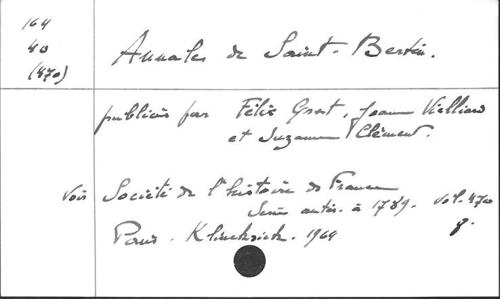 164
40
(470)
Annales de Saint-Bertin.
publiées par Félix Grat, Jeanne Vielliard
et Suzanne Clément.
Voir Société de l'histoire de France
Série antér. à 1789. Vol. 470
g.
Paris. Klincksieck. 1964